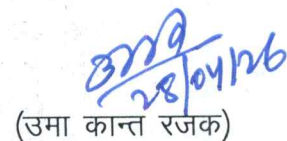 28/04/26
(उमा कान्त रजक)